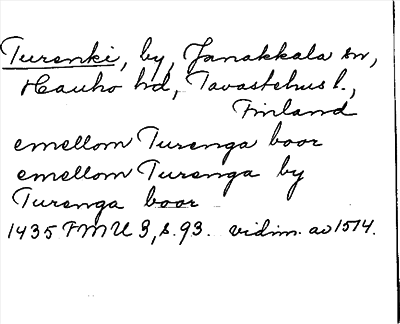 Turenki, by, Janakkala sn,
Hauho hd, Tavastehus l.,
Finland
emellom Turenga boor
emellom Turenga by
Turenga boor
1435 FMU 3, s. 93. vidim. av 1514.